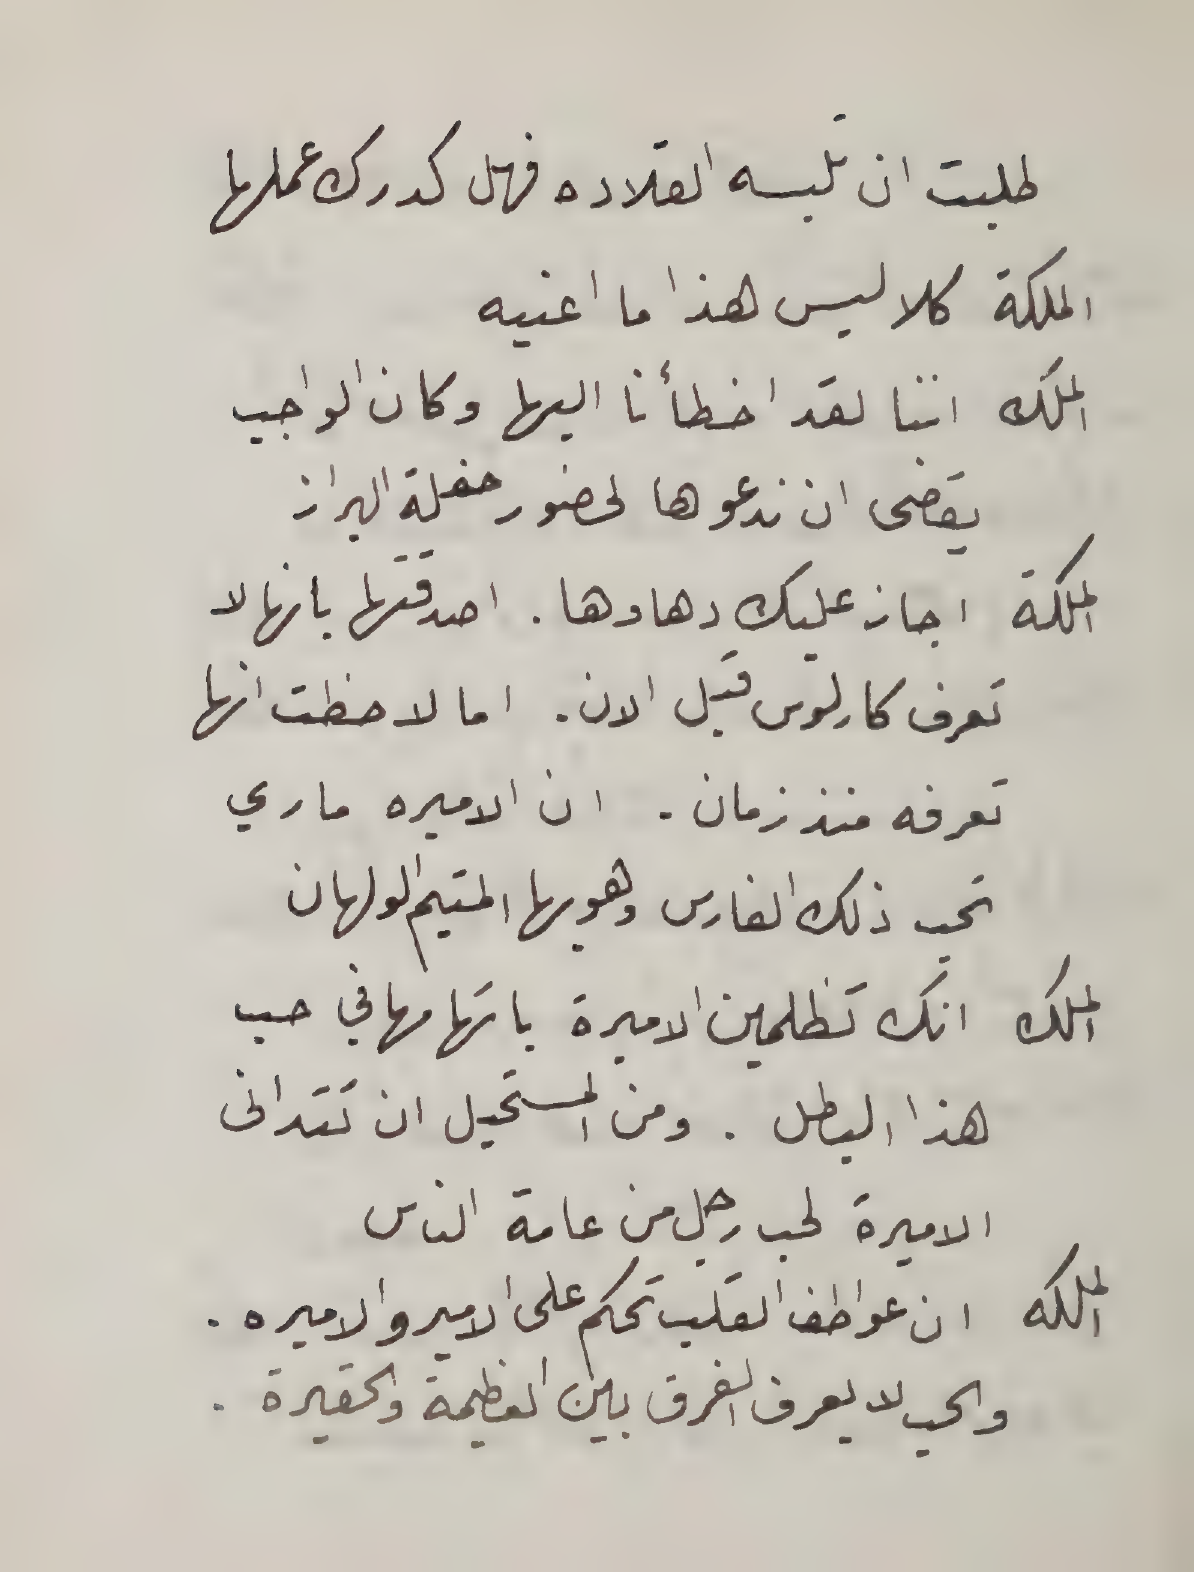 طلبت ان تلبسه القلاده فهل كدرك عملها
الملكة كلا ليس هذا ما اعنيه
الملك اننا لقد اخطأنا اليها وكان الواجب
يقضى ان ندعوها لحضور حفلة البراز
الملكة اجاز عليك دهاوها . اصدقتها بانها لا
تعرف كارلوس قبل الان . اما لاحظت انها
تعرفه منذ زمان . ان الاميره ماري
تحب ذلك الفارس وهو بها المتيم الولهان
الملك انك تظلمين الاميرة باتهامها في حب
هذا البطل . ومن المستحيل ان تتدانى
الاميرة لحب رجل من عامة الناس
الملكه ان عواطف القلب تحكم على الامير والاميره .
والحب لا يعرف الفرق بين العظيمة والحقيرة .